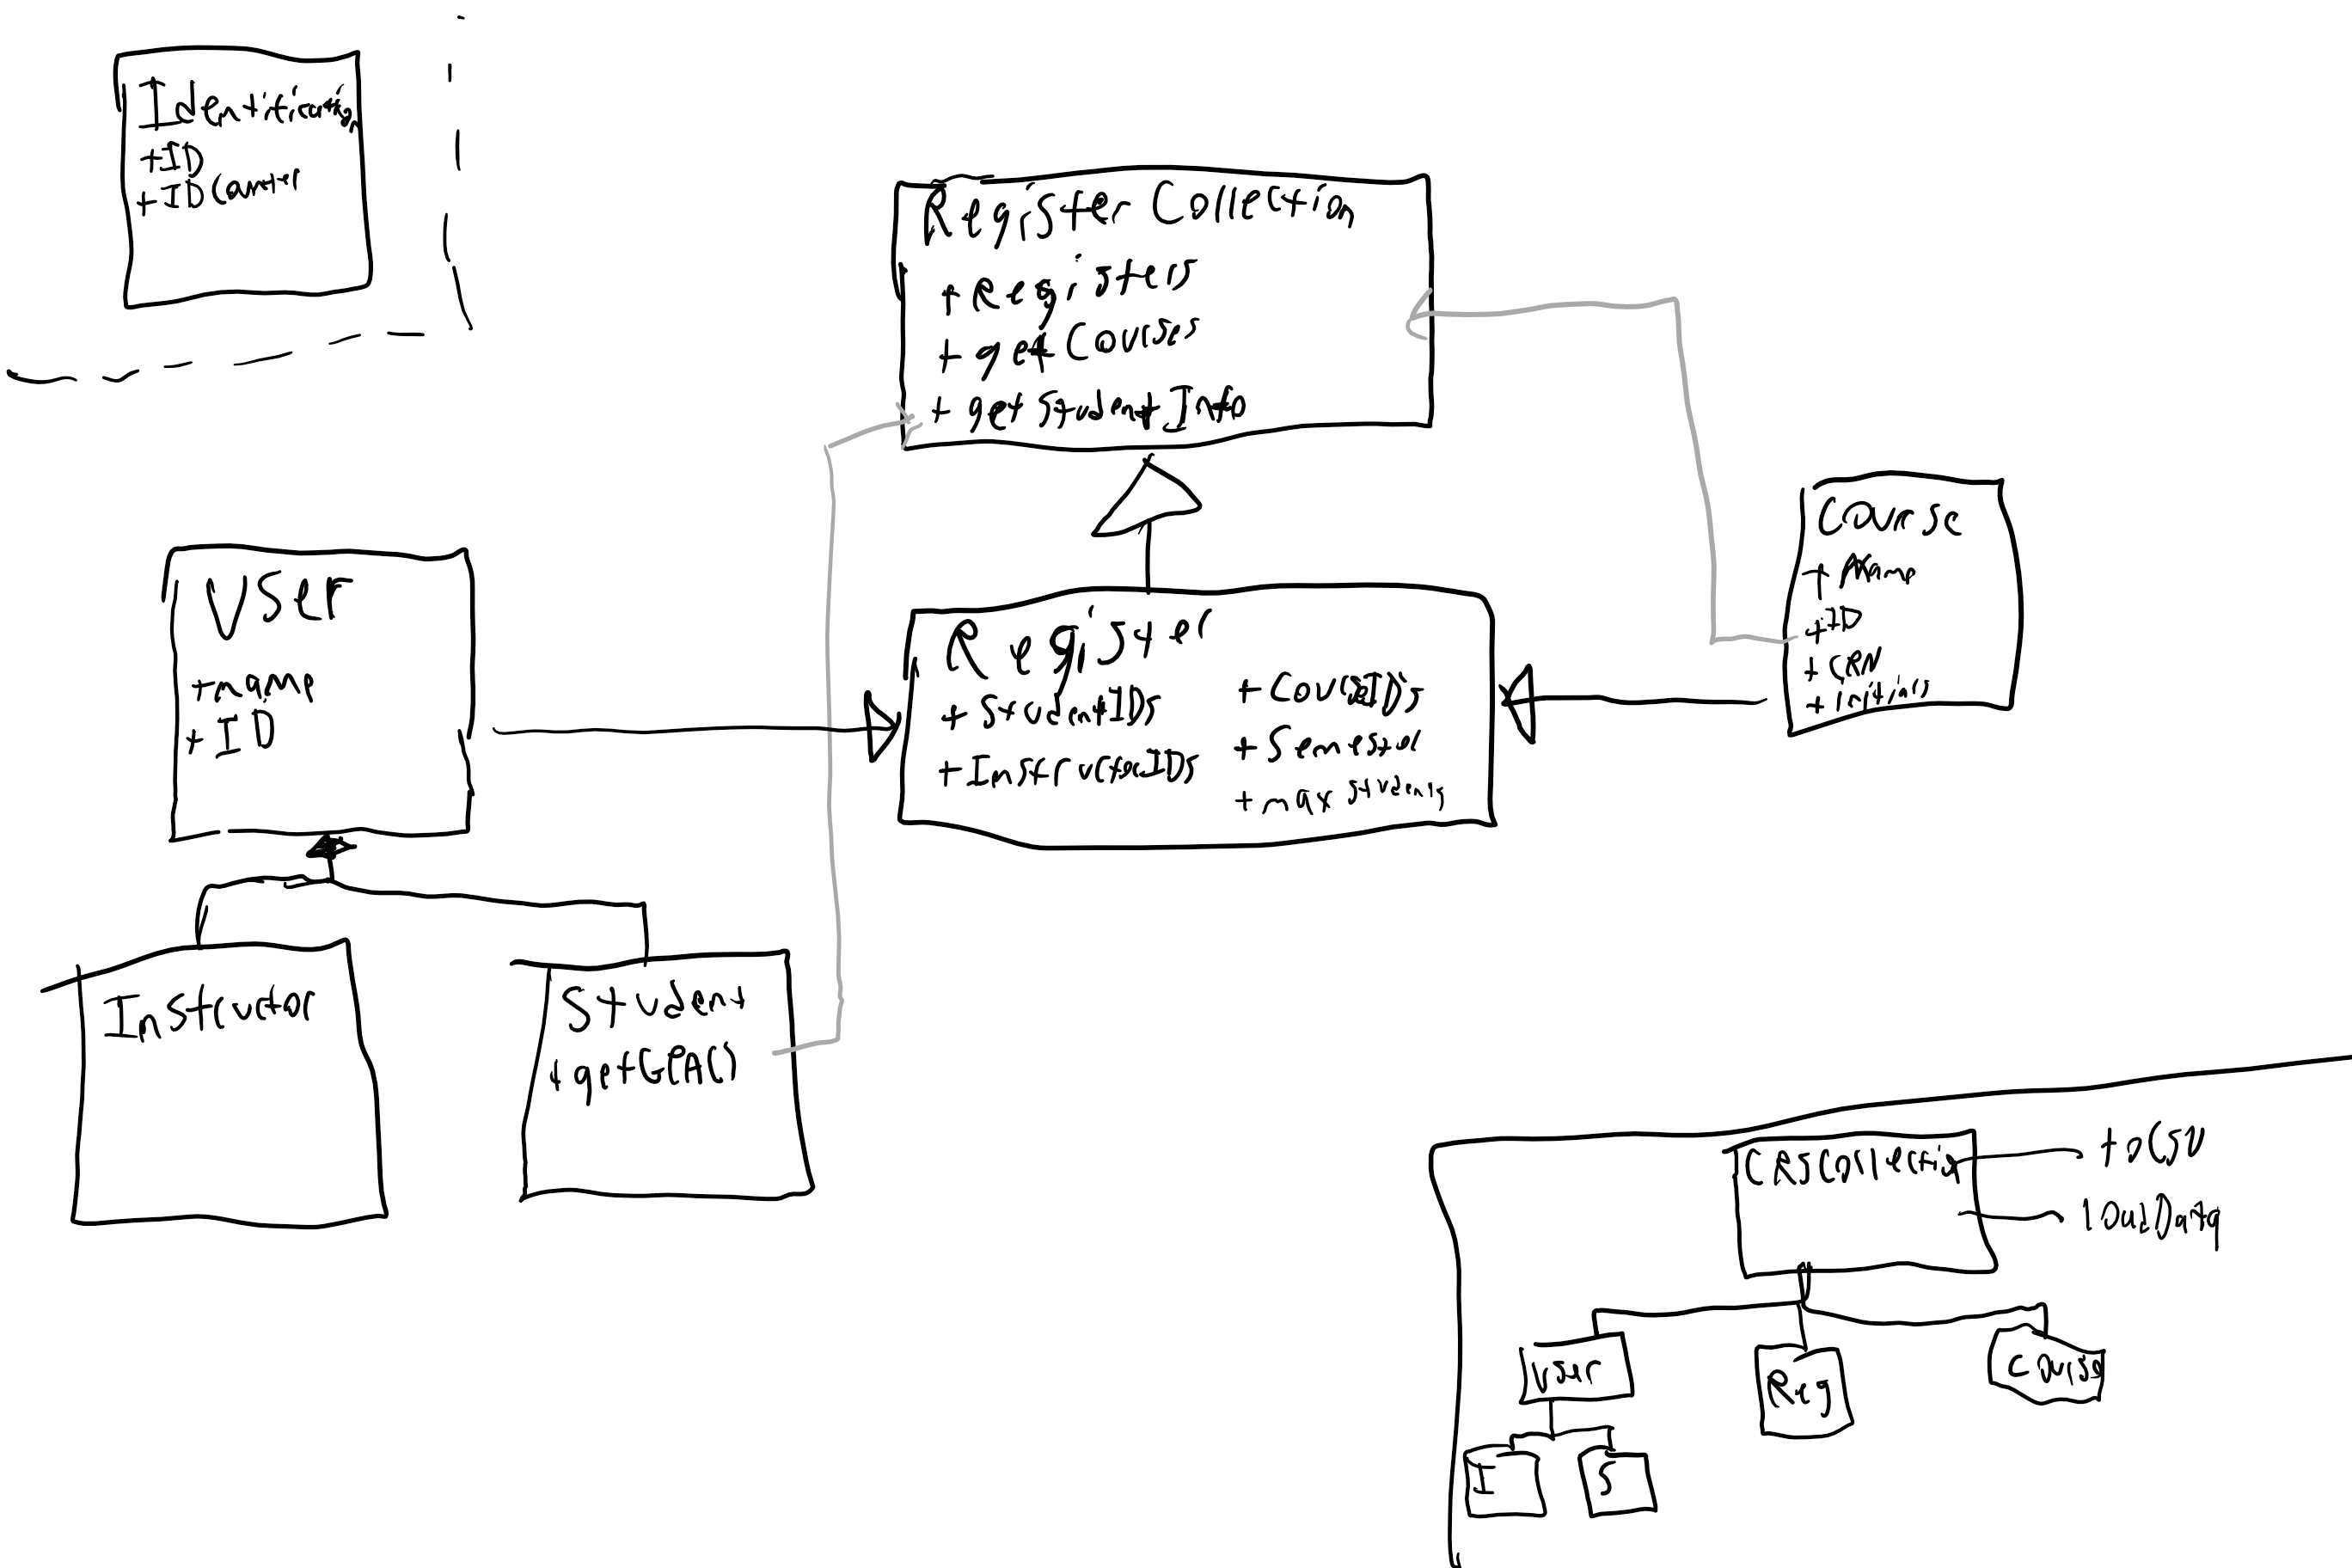 +ID
+IDCounter
Register Collection
+ Registers
+ get Courses
+ get Student Info
User
+name
+ ID
Register
+ StudentIDs
+ InstructorIDs
+ CourseIDs
+ Semester
+ max students
Course
+ Name
+ID
+ CRN
+ initials
Instructor
Student
+ getGPA()
CRSCollection
toCSV
loadData
User
Reg
Course
I
S